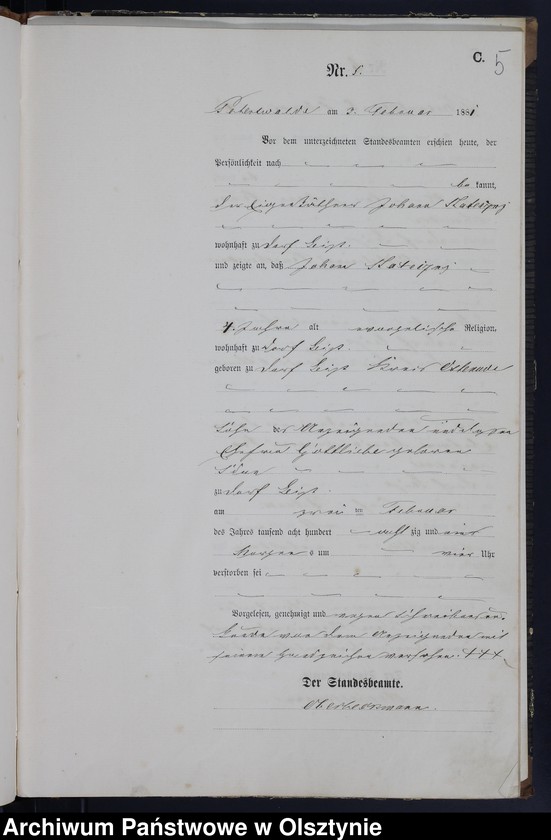 C. 5
Nr. 8.
Peterswalde am 3. Februar 1881
Vor dem unterzeichneten Standesbeamten erschien heute, der
Persönlichkeit nach
be kannt,
der Eigenkäthner Johann
wohnhaft zu Dorf
und zeigte an, daß Johann
4 Jahre alt evangelische Religion,
wohnhaft zu Dorf
geboren zu Dorf Kreis Osterode
Sohn des Anzeigenden und dessen
Ehefrau Gottliebe geborene
zu Dorf
am zwei ten Februar
des Jahres tausend acht hundert acht zig und eins
Morgens um vier Uhr
verstorben sei
Vorgelesen, genehmigt und wegen Schreibensun-
kunde von dem Anzeigenden mit
seinem Handzeichen versehen. +++
Der Standesbeamte.